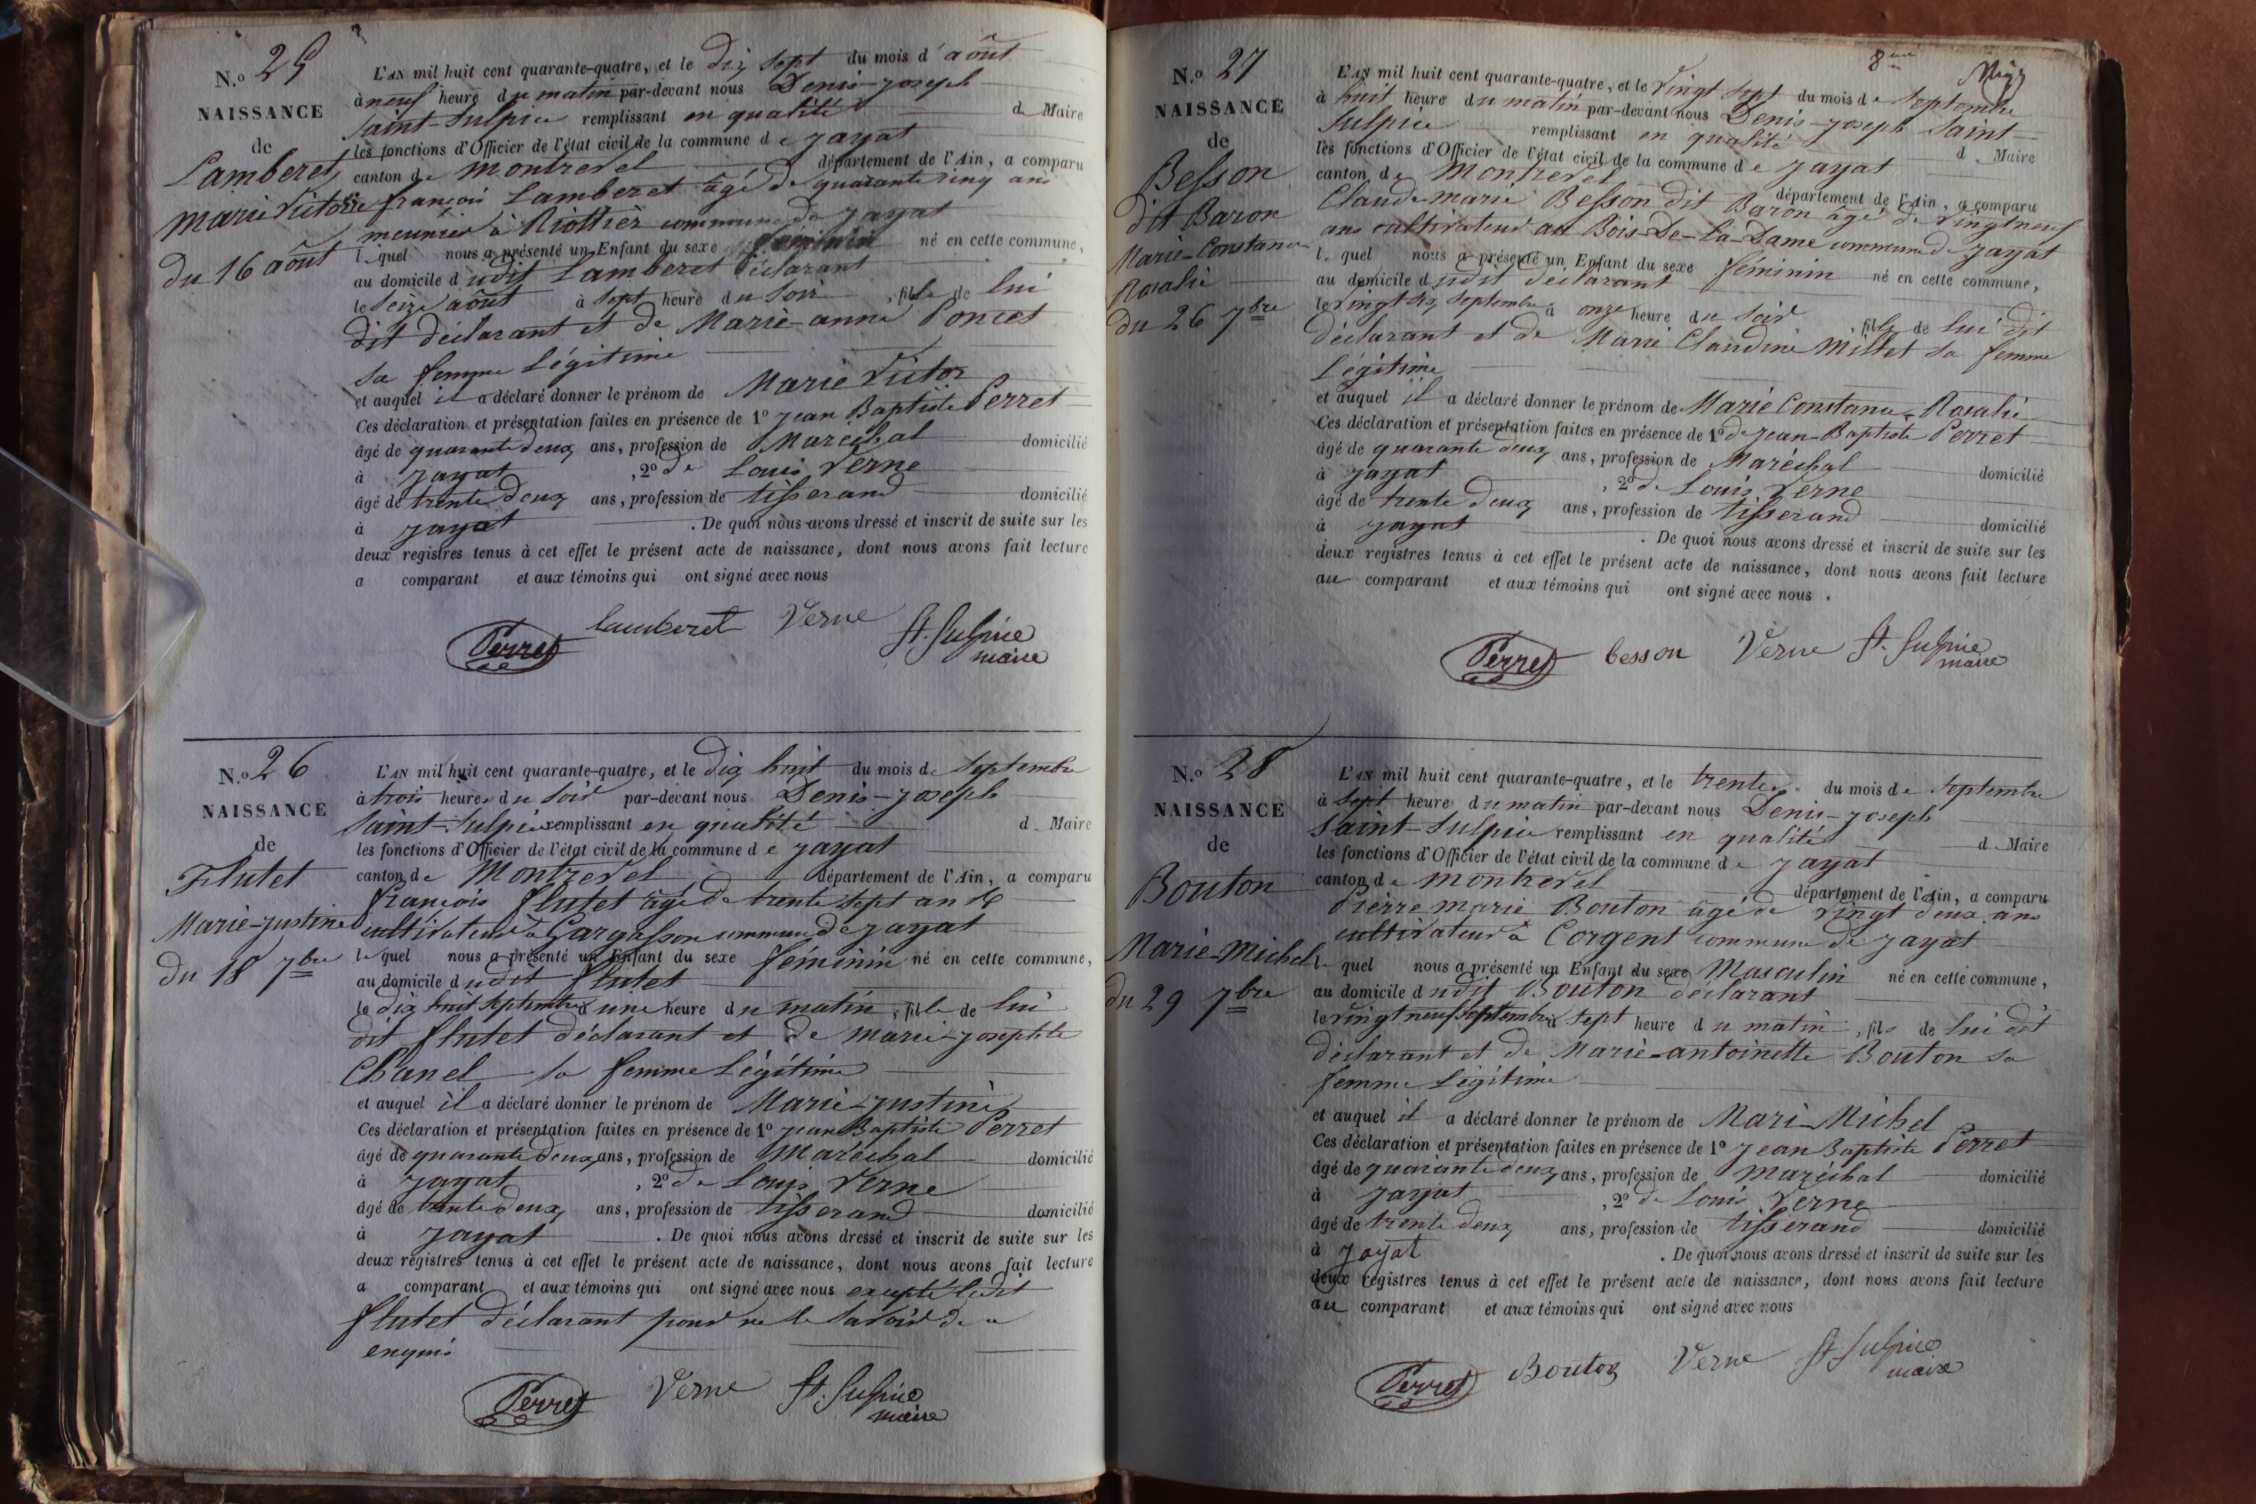 N.o 25
NAISSANCE
de
Lamberet
Marie Victor
du 16 août
L'AN mil huit cent quarante-quatre, et le dix sept du mois d'août
à neuf heure du matin par-devant nous Denis-joseph
Saint-Sulpice remplissant en qualité de Maire
les fonctions d'Officier de l'état civil de la commune de jayat
canton de Montrevel département de l'Ain, a comparu
françois Lamberet âgé de quarante cinq ans
meunier à Riottier commune de jayat
lequel nous a présenté un Enfant du sexe féminin né en cette commune,
au domicile dudit Lamberet déclarant
le seize août à sept heure du soir, fille de lui
dit déclarant et de Marie-anne Poncet
sa femme Légitime
et auquel il a déclaré donner le prénom de Marie Victor
Ces déclaration et présentation faites en présence de 1º jean Baptiste Perret
âgé de quarante deux ans, profession de Maréchal domicilié
à jayat, 2º de Louis Verne
âgé de trente deux ans, profession de tisserand domicilié
à jayat. De quoi nous avons dressé et inscrit de suite sur les
deux registres tenus à cet effet le présent acte de naissance, dont nous avons fait lecture
a comparant et aux témoins qui ont signé avec nous
Perret lamberet Verne St. Sulpice
maire
N.o 26
NAISSANCE
de
Flutet
Marie-justine
du 18 7bre
L'AN mil huit cent quarante-quatre, et le dix huit du mois de Septembre
à trois heures du soir par-devant nous Denis-joseph
Saint-Sulpice remplissant en qualité de Maire
les fonctions d'Officier de l'état civil de la commune de jayat
canton de Montrevel département de l'Ain, a comparu
François flutet âgé de trente sept ans
cultivateur à Gargasson commune de jayat
lequel nous a présenté un Enfant du sexe féminin né en cette commune,
au domicile dudit flutet
le dix huit septembre à une heure du matin, fille de lui
dit flutet déclarant et de marie-josephte
Chanel sa femme Légitime
et auquel il a déclaré donner le prénom de Marie-justine
Ces déclaration et présentation faites en présence de 1º jean Baptiste Perret
âgé de quarante deux ans, profession de Maréchal domicilié
à jayat, 2º de Louis Verne
âgé de trente deux ans, profession de tisserand domicilié
à jayat. De quoi nous avons dressé et inscrit de suite sur les
deux registres tenus à cet effet le présent acte de naissance, dont nous avons fait lecture
a comparant et aux témoins qui ont signé avec nous excepté ledit
flutet déclarant pour ne le savoir de ce
enquis
Perret Verne St. Sulpice
maire
8me
N.o 27
NAISSANCE
de
Besson
dit Baron
Marie-Constance
Rosalie
du 26 7bre
L'AN mil huit cent quarante-quatre, et le vingt sept du mois de septembre
à huit heure du matin par-devant nous Denis-joseph Saint-
Sulpice remplissant en qualité de Maire
les fonctions d'Officier de l'état civil de la commune de jayat
canton de Montrevel département de l'Ain, a comparu
Claude-marie Besson dit Baron âgé de vingt neuf
ans cultivateur au Bois-De-la-Dame commune de jayat
lequel nous a présenté un Enfant du sexe féminin né en cette commune,
au domicile dudit déclarant
le vingt six septembre à onze heure du soir, fille de lui dit
déclarant et de Marie Claudine Millet sa femme
Légitime
et auquel il a déclaré donner le prénom de Marie Constance-Rosalie
Ces déclaration et présentation faites en présence de 1º de jean-Baptiste Perret
âgé de quarante deux ans, profession de Maréchal domicilié
à jayat, 2º de Louis Verne
âgé de trente deux ans, profession de tisserand domicilié
à jayat. De quoi nous avons dressé et inscrit de suite sur les
deux registres tenus à cet effet le présent acte de naissance, dont nous avons fait lecture
au comparant et aux témoins qui ont signé avec nous.
Perret besson Verne St. Sulpice
maire
N.o 28
NAISSANCE
de
Bouton
Marie-Michel
du 29 7bre
L'AN mil huit cent quarante-quatre, et le trente du mois de septembre
à sept heure du matin par-devant nous Denis-joseph
Saint-Sulpice remplissant en qualité de Maire
les fonctions d'Officier de l'état civil de la commune de jayat
canton de montrevel département de l'Ain, a comparu
Pierre marie Bouton âgé de vingt deux ans
cultivateur à Corgent commune de jayat
lequel nous a présenté un Enfant du sexe Masculin né en cette commune,
au domicile dudit Bouton déclarant
le vingt neuf septembre à sept heure du matin, fils de lui dit
déclarant et de Marie-antoinette Bouton sa
femme Légitime
et auquel il a déclaré donner le prénom de Mari-Michel
Ces déclaration et présentation faites en présence de 1º jean Baptiste Perret
âgé de quarante deux ans, profession de maréchal domicilié
à jayat, 2º de Louis Verne
âgé de trente deux ans, profession de tisserand domicilié
à jayat. De quoi nous avons dressé et inscrit de suite sur les
deux registres tenus à cet effet le présent acte de naissance, dont nous avons fait lecture
au comparant et aux témoins qui ont signé avec nous
Perret Bouton Verne St. Sulpice
maire